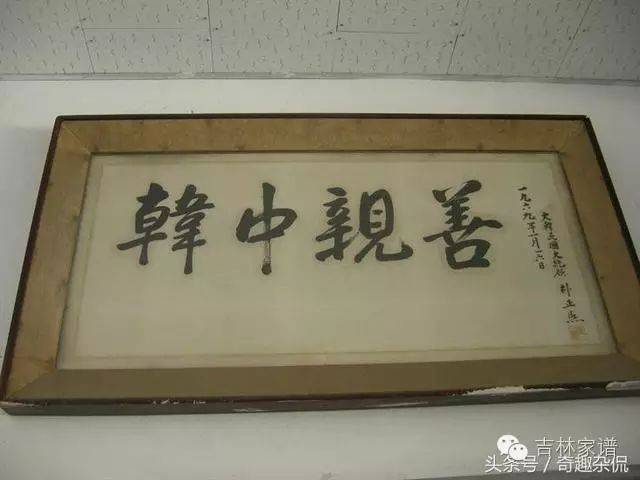 韓中親善
一九六九年一月一六日
大韓民國大統領
朴正熙
吉林家谱
头条号/奇趣杂侃